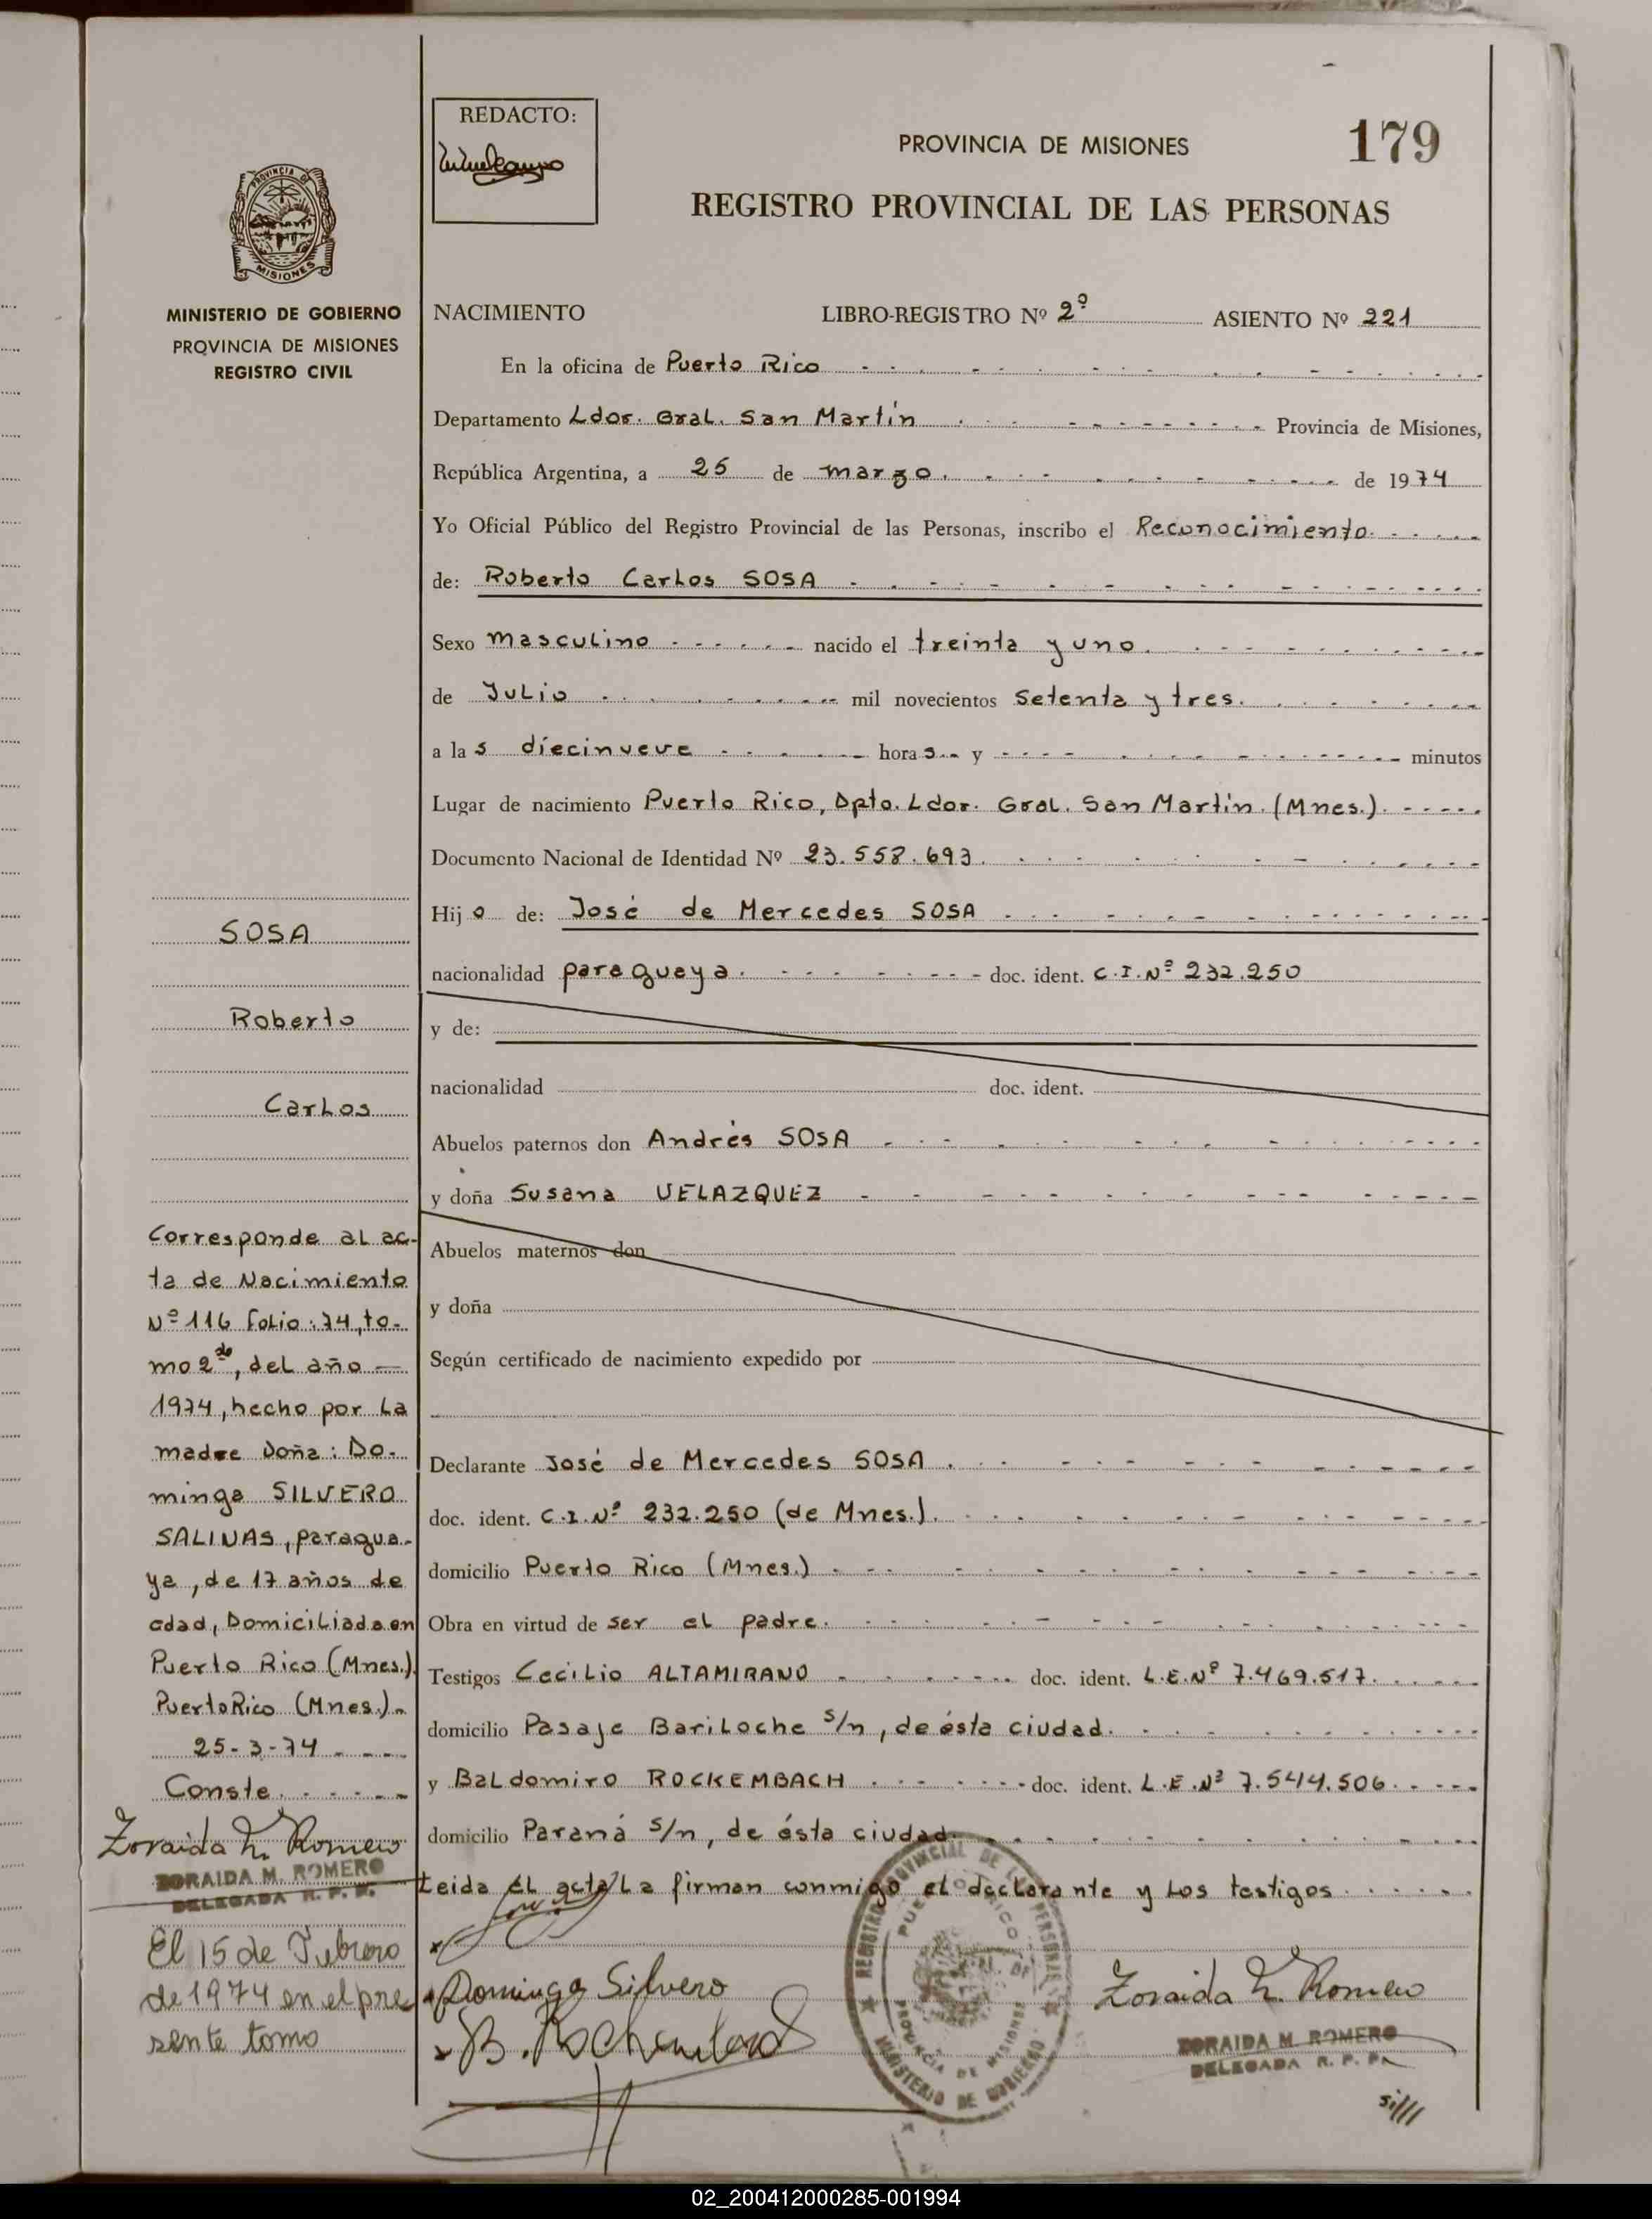 REDACTO:
PROVINCIA DE MISIONES
179
REGISTRO PROVINCIAL DE LAS PERSONAS
PROVINCIA DE
MISIONES
MINISTERIO DE GOBIERNO
PROVINCIA DE MISIONES
REGISTRO CIVIL
NACIMIENTO LIBRO-REGISTRO Nº 2º ASIENTO Nº 221
En la oficina de Puerto Rico
Departamento Ldor. Gral. San Martín Provincia de Misiones,
República Argentina, a 25 de marzo. de 1974
Yo Oficial Público del Registro Provincial de las Personas, inscribo el Reconocimiento.
de: Roberto Carlos SOSA
Sexo masculino nacido el treinta y uno.
de Julio mil novecientos setenta y tres.
a las diecinueve horas y minutos
Lugar de nacimiento Puerto Rico, Dpto. Ldor. Gral. San Martín. (Mnes.).
Documento Nacional de Identidad Nº 23.558.693.
Hijo de: José de Mercedes SOSA
nacionalidad paraguaya. doc. ident. C.I.Nº 232.250
y de:
nacionalidad doc. ident.
Abuelos paternos don Andrés SOSA
y doña Susana VELAZQUEZ
Abuelos maternos don
y doña
Según certificado de nacimiento expedido por
Declarante José de Mercedes SOSA.
doc. ident. C.I.Nº 232.250 (de Mnes.).
domicilio Puerto Rico (Mnes.)
Obra en virtud de ser el padre.
Testigos Cecilio ALTAMIRANO doc. ident. L.E.Nº 7.469.517.
domicilio Pasaje Bariloche s/n, de ésta ciudad.
y Baldomiro ROCKEMBACH doc. ident. L.E.Nº 7.544.506.
domicilio Paraná s/n, de ésta ciudad.
Leida el acta, La firman conmigo el declarante y los testigos.
Dominga Silvero
Zoraida M. Romero
ZORAIDA M. ROMERO
DELEGADA R. P. P.
REGISTRO PROVINCIAL DE LAS PERSONAS
PUERTO RICO
PROVINCIA DE MISIONES
MINISTERIO DE GOBIERNO
SOSA
Roberto
Carlos
Corresponde al ac-
ta de Nacimiento
Nº 116 folio: 74, to-
mo 2do, del año
1974, hecho por la
madre Doña: Do-
minga SILVERO
SALINAS, paragua-
ya, de 17 años de
edad, Domiciliada en
Puerto Rico (Mnes.).
Puerto Rico (Mnes.).
25-3-74
Conste.
Zoraida M. Romero
ZORAIDA M. ROMERO
DELEGADA R. P. P.
El 15 de Febrero
de 1974 en el pre
sente tomo
02_200412000285-001994